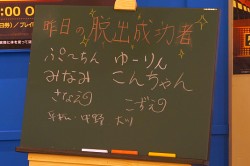 00 O
昨日の脱出成功者
ぷーちん ゆーりん
みなみ こんちゃん
さなえ こずえ
中野